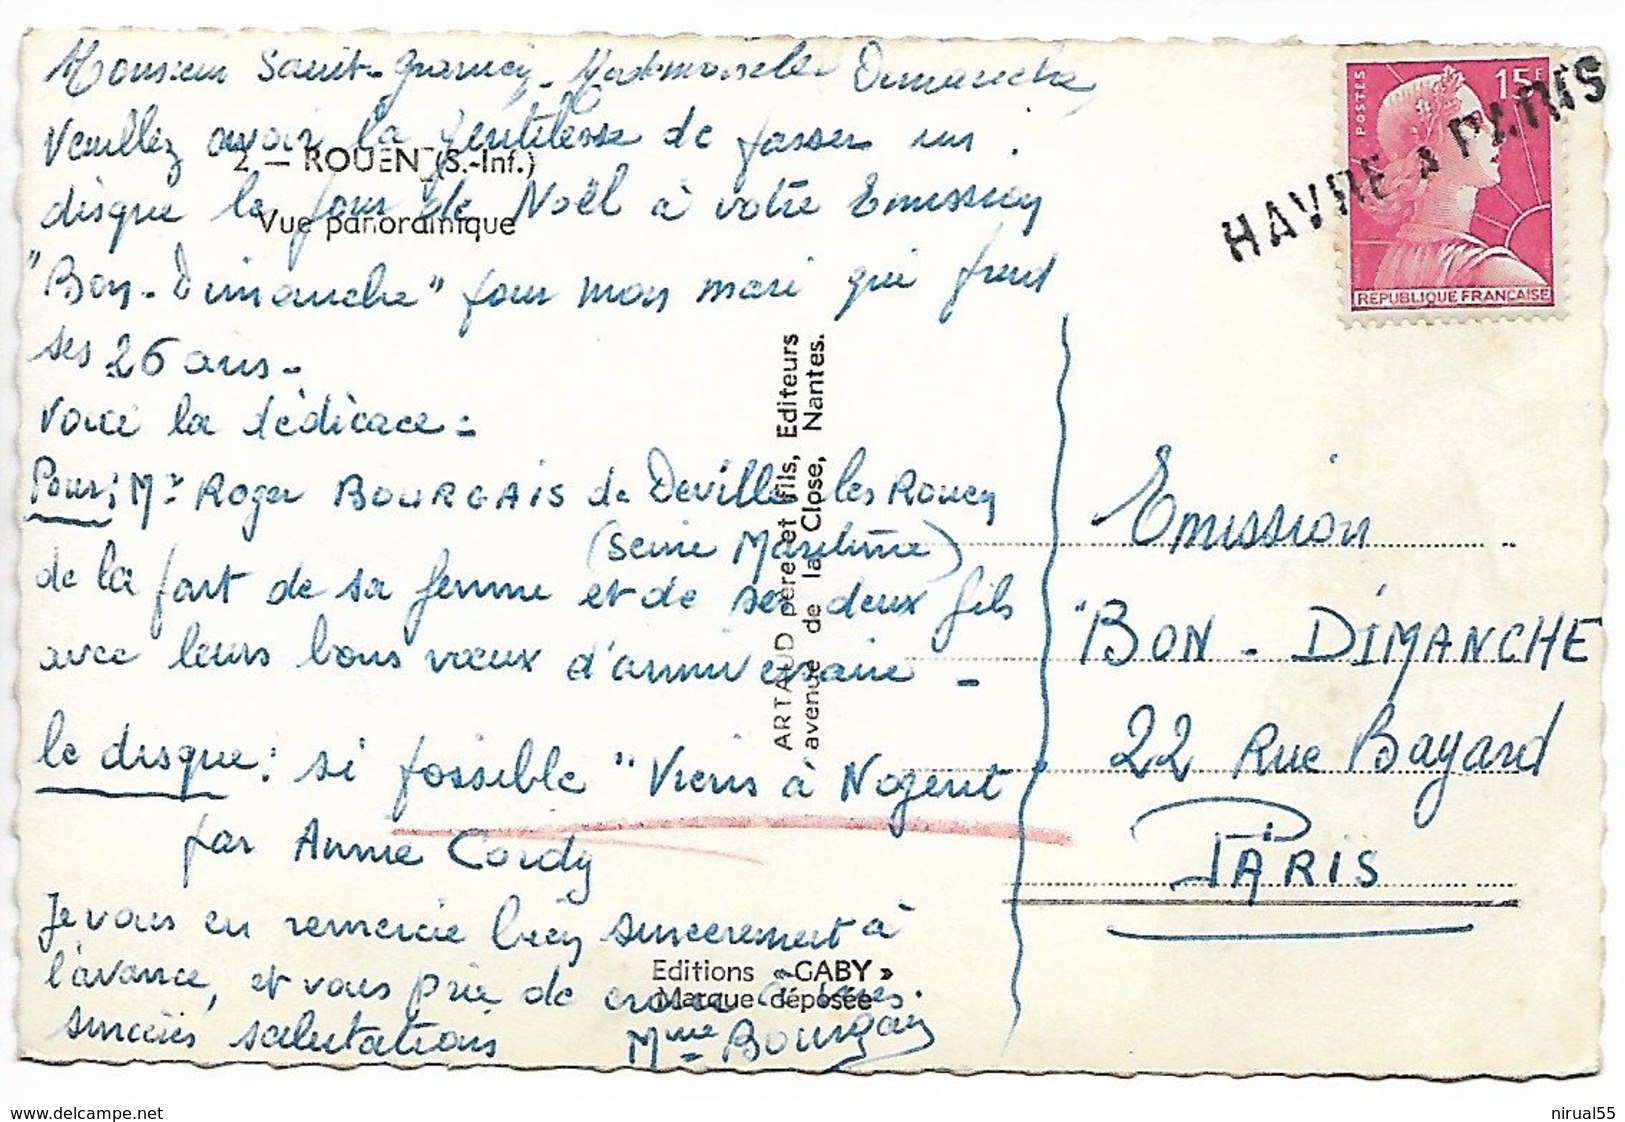 Monsieur Saint-Granier - Mademoiselle Dimanche,
Veuillez avoir la gentilesse de passer un
disque le jour de Noël à votre Emission
"Bon-Dimanche" pour mon mari qui prend
ses 26 ans -
Voici la dédicace :
Pour : Mr Roger BOURGAIS de Deville les Rouen
(Seine Maritime)
de la part de sa femme et de ses deux fils
avec leurs bons vœux d'anniversaire -
le disque : si possible "Viens à Nogent
par Annie Cordy
Je vous en remercie bien sincerement à
l'avance, et vous prie de croire à mes
sincères salutations
Mme Bourgais
2. — ROUEN (S.-Inf.)
Vue panoramique
ARTAUD père et fils, Editeurs
avenue de la Close, Nantes.
Editions «GABY»
Marque déposée
POSTES
15F
REPUBLIQUE FRANÇAISE
HAVRE A PARIS
Emission
"BON - DIMANCHE
22 Rue Bayard
PARIS
delcampe.net
nirual55